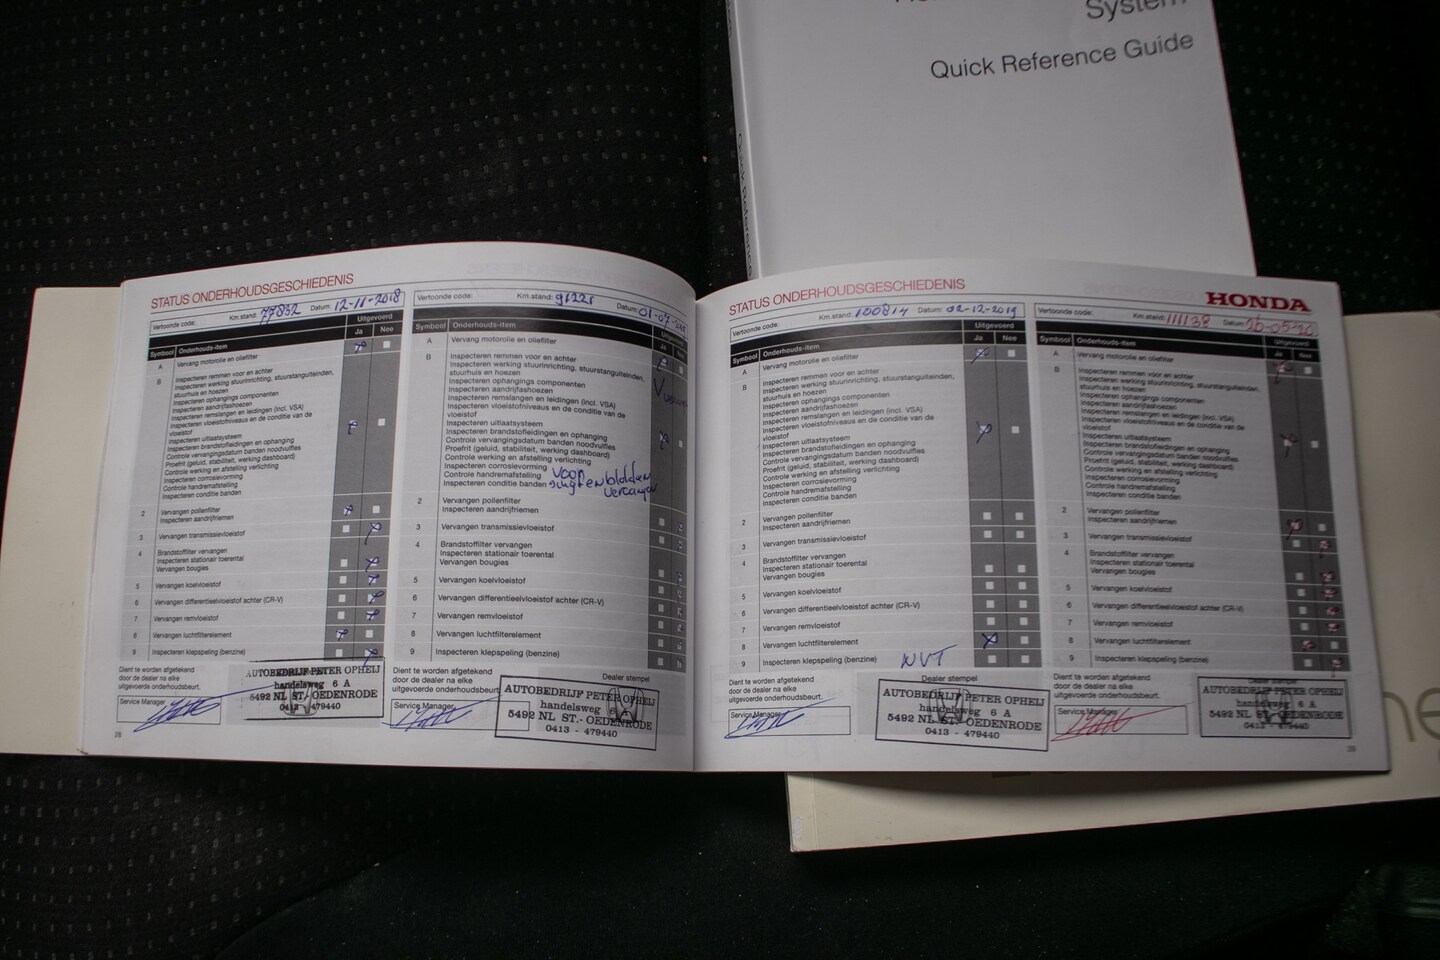 System
Quick Reference Guide
STATUS ONDERHOUDSGESCHIEDENIS
Vertoonde code:
Km.stand: 77832
Datum: 12-11-2018
Uitgevoerd
Symbool Onderhouds-item Ja Nee
A Vervang motorolie en oliefilter
B Inspecteren remmen voor en achter
Inspecteren werking stuurinrichting, stuurstangeinden,
stuurhuis en hoezen
Inspecteren ophangings componenten
Inspecteren aandrijfashoezen
Inspecteren remslangen en leidingen (incl. VSA)
Inspecteren vloeistofniveaus en de conditie van de
vloeistof
Inspecteren uitlaatsysteem
Inspecteren brandstofleidingen en ophanging
Controle vervangingsdatum banden noodvulfles
Proefrit (geluid, stabiliteit, werking dashboard)
Controle werking en afstelling verlichting
Inspecteren corrosievorming
Controle handremafstelling
Inspecteren conditie banden
2 Vervangen pollenfilter
Inspecteren aandrijfriemen
3 Vervangen transmissievloeistof
4 Brandstoffilter vervangen
Inspecteren stationair toerental
Vervangen bougies
5 Vervangen koelvloeistof
6 Vervangen differentieelvloeistof achter (CR-V)
7 Vervangen remvloeistof
8 Vervangen luchtfilterelement
9 Inspecteren klepspeling (benzine)
Dient te worden afgetekend
door de dealer na elke
uitgevoerde onderhoudsbeurt.
Service Manager
AUTOBEDRIJF PETER OPHEIJ
handelsweg 6 A
5492 NL ST.- OEDENRODE
0413 - 479440
28
Vertoonde code:
Km.stand: 91221
Datum:
Symbool Onderhouds-item
A Vervang motorolie en oliefilter
B Inspecteren remmen voor en achter
Inspecteren werking stuurinrichting, stuurstangeinden,
stuurhuis en hoezen
Inspecteren ophangings componenten
Inspecteren aandrijfashoezen
Inspecteren remslangen en leidingen (incl. VSA)
Inspecteren vloeistofniveaus en de conditie van de
vloeistof
Inspecteren uitlaatsysteem
Inspecteren brandstofleidingen en ophanging
Controle vervangingsdatum banden noodvulfles
Proefrit (geluid, stabiliteit, werking dashboard)
Controle werking en afstelling verlichting
Inspecteren corrosievorming
Controle handremafstelling
Inspecteren conditie banden
voor
2 Vervangen pollenfilter
Inspecteren aandrijfriemen
3 Vervangen transmissievloeistof
4 Brandstoffilter vervangen
Inspecteren stationair toerental
Vervangen bougies
5 Vervangen koelvloeistof
6 Vervangen differentieelvloeistof achter (CR-V)
7 Vervangen remvloeistof
8 Vervangen luchtfilterelement
9 Inspecteren klepspeling (benzine)
Dient te worden afgetekend
door de dealer na elke
uitgevoerde onderhoudsbeurt.
Dealer stempel
Service Manager
AUTOBEDRIJF PETER OPHEIJ
handelsweg 6
5492 NL ST.- OEDENRODE
0413 - 479440
STATUS ONDERHOUDSGESCHIEDENIS
HONDA
Vertoonde code:
Km.stand: 100814
Datum: 02-12-2019
Uitgevoerd
Symbool Onderhouds-item Ja Nee
A Vervang motorolie en oliefilter
B Inspecteren remmen voor en achter
Inspecteren werking stuurinrichting, stuurstangeinden,
stuurhuis en hoezen
Inspecteren ophangings componenten
Inspecteren aandrijfashoezen
Inspecteren remslangen en leidingen (incl. VSA)
Inspecteren vloeistofniveaus en de conditie van de
vloeistof
Inspecteren uitlaatsysteem
Inspecteren brandstofleidingen en ophanging
Controle vervangingsdatum banden noodvulfles
Proefrit (geluid, stabiliteit, werking dashboard)
Controle werking en afstelling verlichting
Inspecteren corrosievorming
Controle handremafstelling
Inspecteren conditie banden
2 Vervangen pollenfilter
Inspecteren aandrijfriemen
3 Vervangen transmissievloeistof
4 Brandstoffilter vervangen
Inspecteren stationair toerental
Vervangen bougies
5 Vervangen koelvloeistof
6 Vervangen differentieelvloeistof achter (CR-V)
7 Vervangen remvloeistof
8 Vervangen luchtfilterelement
9 Inspecteren klepspeling (benzine) NVT
Dient te worden afgetekend
door de dealer na elke
uitgevoerde onderhoudsbeurt.
Dealer stempel
Service Manager
AUTOBEDRIJF PETER OPHEIJ
handelsweg 6 A
5492 NL ST.- OEDENRODE
0413 - 479440
Vertoonde code:
Km.stand: 111138
Datum:
Uitgevoerd
Symbool Onderhouds-item Ja Nee
A Vervang motorolie en oliefilter
B Inspecteren remmen voor en achter
Inspecteren werking stuurinrichting, stuurstangeinden,
stuurhuis en hoezen
Inspecteren ophangings componenten
Inspecteren aandrijfashoezen
Inspecteren remslangen en leidingen (incl. VSA)
Inspecteren vloeistofniveaus en de conditie van de
vloeistof
Inspecteren uitlaatsysteem
Inspecteren brandstofleidingen en ophanging
Controle vervangingsdatum banden noodvulfles
Proefrit (geluid, stabiliteit, werking dashboard)
Controle werking en afstelling verlichting
Inspecteren corrosievorming
Controle handremafstelling
Inspecteren conditie banden
2 Vervangen pollenfilter
Inspecteren aandrijfriemen
3 Vervangen transmissievloeistof
4 Brandstoffilter vervangen
Inspecteren stationair toerental
Vervangen bougies
5 Vervangen koelvloeistof
6 Vervangen differentieelvloeistof achter (CR-V)
7 Vervangen remvloeistof
8 Vervangen luchtfilterelement
9 Inspecteren klepspeling (benzine)
Dient te worden afgetekend
door de dealer na elke
uitgevoerde onderhoudsbeurt.
Dealer stempel
Service Manager
AUTOBEDRIJF PETER OPHEIJ
handelsweg 6 A
5492 NL ST.- OEDENRODE
0413 - 479440
29